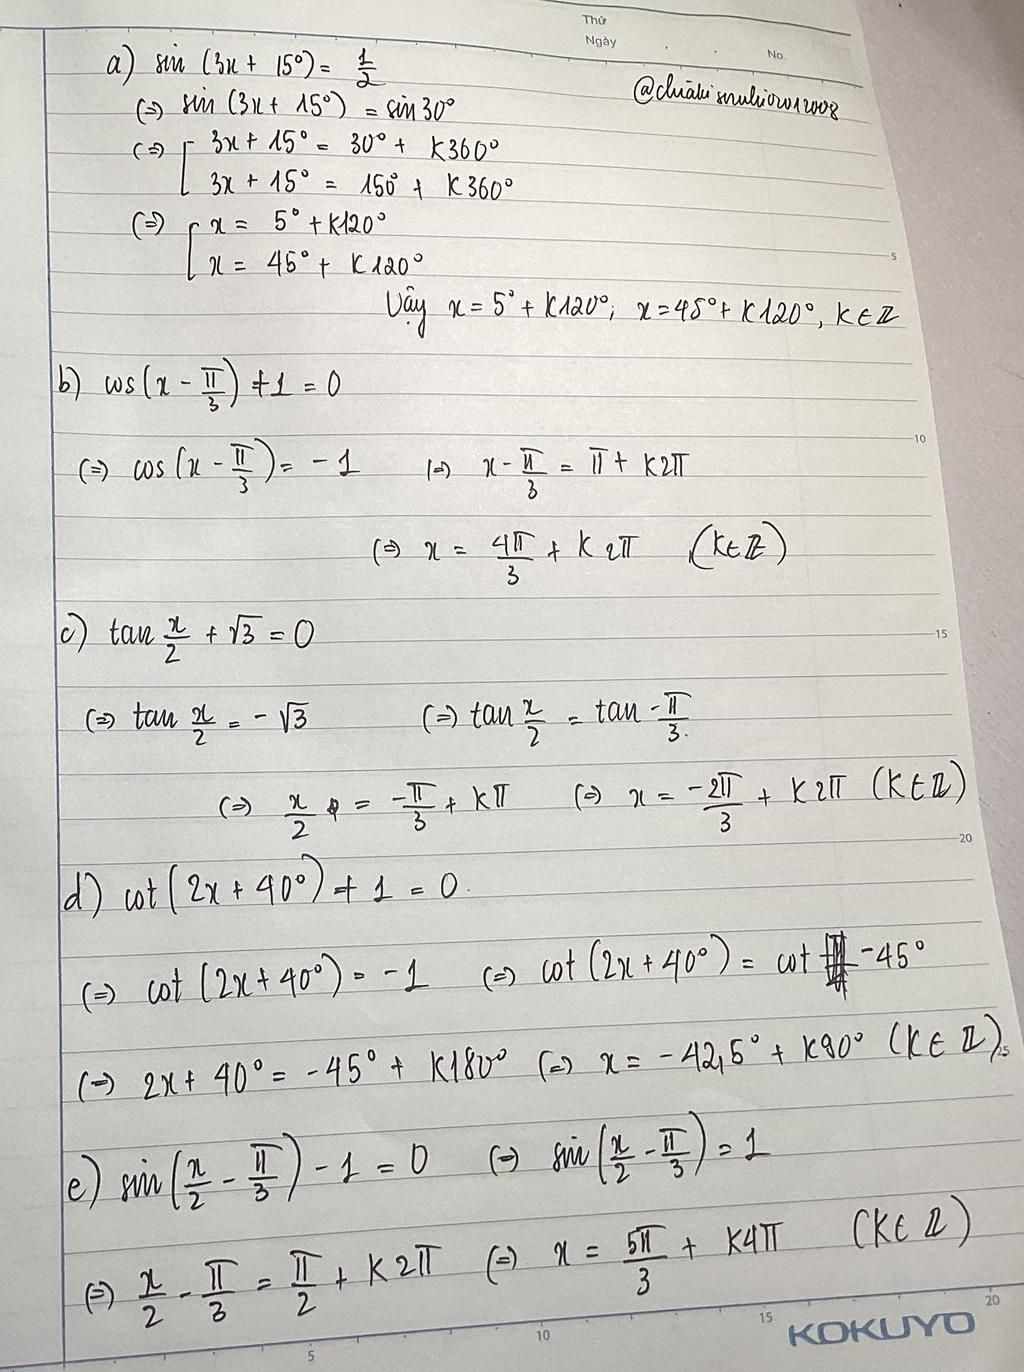 Thứ
Ngày
No.
a) sin (3x + 15°) = 1/2
@chiakisnuhi01012008
(=) sin (3x + 15°) = sin 30°
(=) [ 3x + 15° = 30° + K360°
3x + 15° = 150° + K360°
(=) [ x = 5° + K120°
x = 45° + K120°
5
Vậy x = 5° + K120°; x = 45° + K120°, K ∈ ℤ
b) cos(x - π/3) + 1 = 0
10
(=) cos(x - π/3) = -1 (=) x - π/3 = π + K2π
(=) x = 4π/3 + K2π (K ∈ ℤ)
c) tan x/2 + √3 = 0
15
(=) tan x/2 = -√3 (=) tan x/2 = tan -π/3.
(=) x/2 = -π/3 + Kπ (=) x = -2π/3 + K2π (K ∈ ℤ)
20
d) cot(2x + 40°) + 1 = 0.
(=) cot (2x + 40°) = -1 (=) cot (2x + 40°) = cot -45°
(=) 2x + 40° = -45° + K180° (=) x = -42,5° + K90° (K ∈ ℤ)
25
e) sin(x/2 - π/3) - 1 = 0 (=) sin(x/2 - π/3) = 1
(=) x/2 - π/3 = π/2 + K2π (=) x = 5π/3 + K4π (K ∈ ℤ)
5 10 15 20
KOKUYO